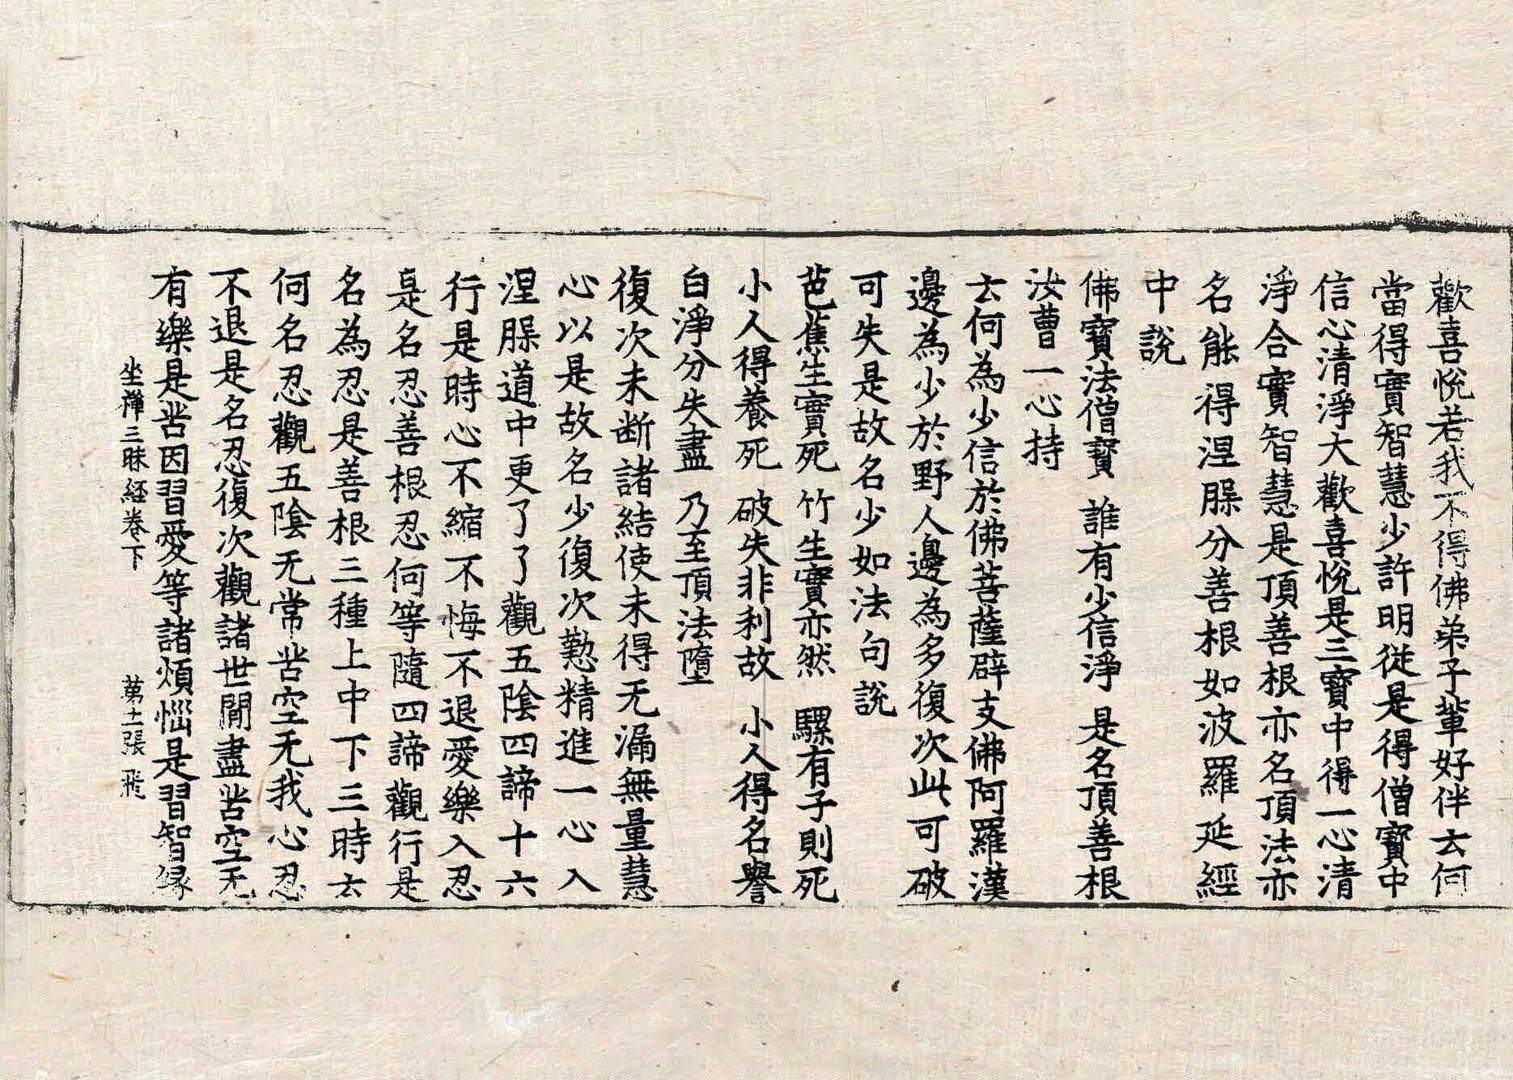 歡喜悅若我不得佛弟子輩好伴云何
當得實智慧少許明從是得僧寶中
信心清淨大歡喜悅是三寶中得一心清
淨合實智慧是頂善根亦名頂法亦
名能得涅槃分善根如波羅延經
中說
佛寶法僧寶 誰有少信淨 是名頂善根
汝曹一心持
云何為少信於佛菩薩辟支佛阿羅漢
邊為少於野人邊為多復次此可破
可失是故名少如法句說
芭蕉生實死 竹生實亦然 騾有子則死
小人得養死 破失非利故 小人得名譽
白淨分失盡 乃至頂法墮
復次未断諸結使未得无漏無量慧
心以是故名少復次懃精進一心入
涅槃道中更了了觀五陰四諦十六
行是時心不縮不悔不退愛樂入忍
是名忍善根忍何等隨四諦觀行是
名為忍是善根三種上中下三時云
何名忍觀五陰无常苦空无我心忍
不退是名忍復次觀諸世間盡苦空无
有樂是苦因習愛等諸煩惱是習智緣
坐禪三昧経卷下 第十一張 飛